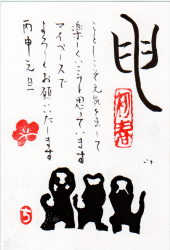 申
賀春
ことしこそ元気を出して
楽しくいこうと思っています
マイペースで
よろしくお願いいたします
丙申元旦